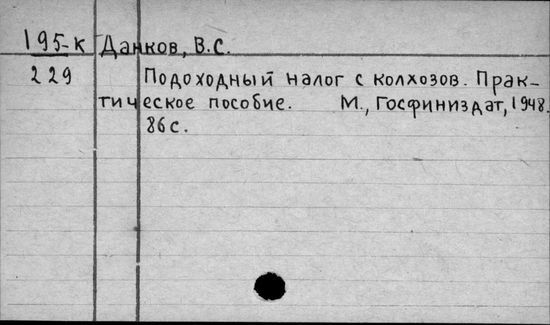 195-к Данков, В.С.
229 Подоходный налог с колхозов. Прак-
тическое пособие. М., Госфиниздат, 1948.
86 с.